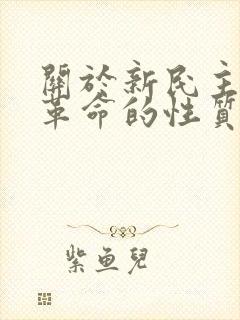 關於新民主
革命的性質
紫魚兒